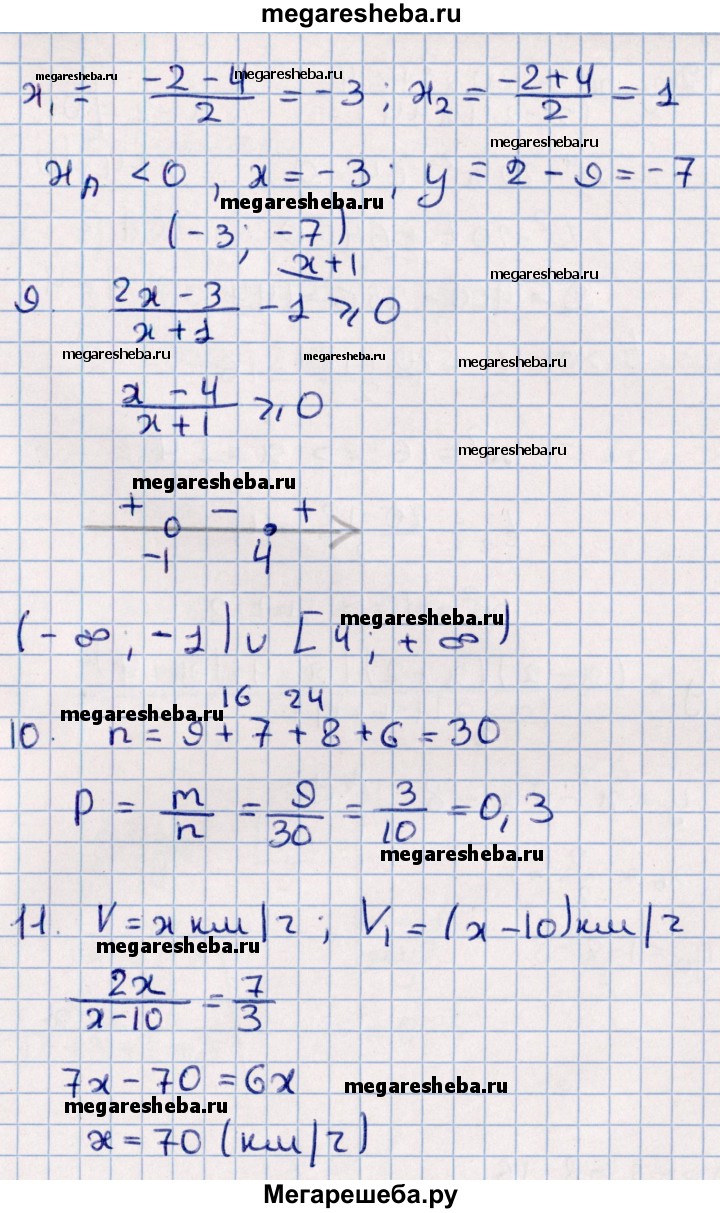 megaresheba.ru
megaresheba.ru megaresheba.ru
x₁ = (-2 - 4)/2 = -3 ; x₂ = (-2+4)/2 = 1
megaresheba.ru
x_A < 0 , x = -3 ; y = 2 - 9 = -7
megaresheba.ru
(-3; -7)
x+1
megaresheba.ru
9. (2x - 3)/(x+1) - 1 ⩾ 0
megaresheba.ru megaresheba.ru megaresheba.ru
(x - 4)/(x+1) ⩾ 0
megaresheba.ru
megaresheba.ru
+ - +
-1 4
megaresheba.ru
(-∞; -1) ∪ [4; +∞)
16 24
megaresheba.ru
10. n = 9 + 7 + 8 + 6 = 30
P = m/n = 9/30 = 3/10 = 0,3
megaresheba.ru
11. V = x км/ч ; V₁ = (x-10) км/ч
megaresheba.ru
2x/(x-10) = 7/3
7x - 70 = 6x
megaresheba.ru
megaresheba.ru
x = 70 (км/ч)
Мегарешеба.ру